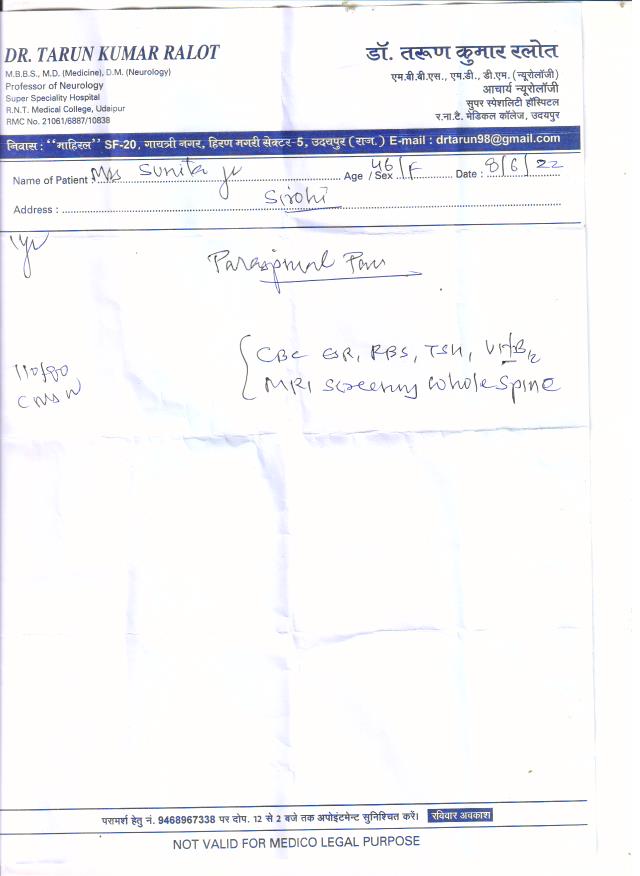 DR. TARUN KUMAR RALOT
M.B.B.S., M.D. (Medicine), D.M. (Neurology)
Professor of Neurology
Super Speciality Hospital
R.N.T. Medical College, Udaipur
RMC No. 21061/6887/10838
डॉ. तरूण कुमार रलोत
एम.बी.बी.एस., एम.डी., डी.एम. (न्यूरोलॉजी)
आचार्य न्यूरोलॉजी
सुपर स्पेशलिटी हॉस्पिटल
र.ना.टै. मेडिकल कॉलेज, उदयपुर
निवास : "माहिरल" SF-20, गायत्री नगर, हिरण मगरी सेक्टर-5, उदयपुर (राज.) E-mail : drtarun98@gmail.com
Name of Patient : Mrs Sunita Age / Sex 46/F Date : 8/6/22
Address : Sirohi
1yr
Paraspinal Pain
CBC ESR, RBS, TSH, Vit B12
MRI screening whole spine
110/80
परामर्श हेतु नं. 9468967338 पर दोप. 12 से 2 बजे तक अपोइंटमेन्ट सुनिश्चित करें। रविवार अवकाश
NOT VALID FOR MEDICO LEGAL PURPOSE